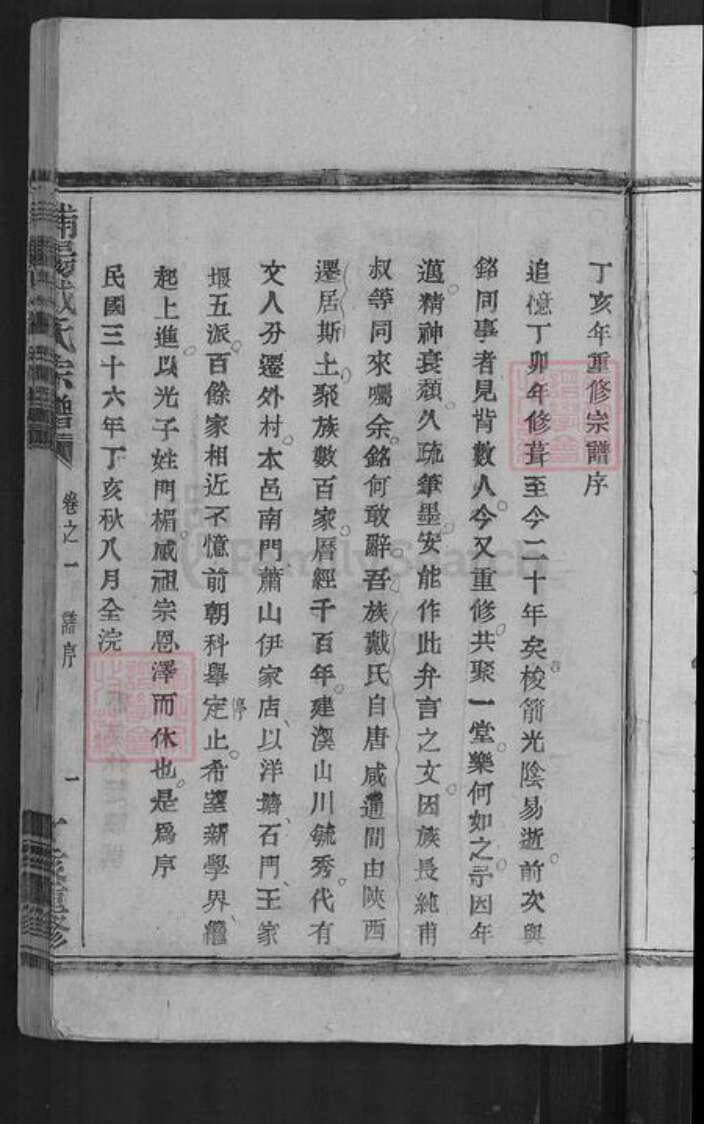 丁亥年重修宗譜序
追憶丁卯年修葺至今二十年矣。梭箭光陰易逝。前次與
銘同事者見背數人。今又重修。共聚一堂。樂何如之。㝷因年
邁。精神衰頹。久疏筆墨。安能作此弁言之文。因族長純甫
叔等同來囑余。銘何敢辭。吾族戴氏自唐咸通間由陝西
遷居斯土。聚族數百家。曆經千百年。建溪山川毓秀。代有
文人。分遷外村。本邑南門蕭山伊家店、以洋塘、石門、王家
堰五派。百餘家相近。不憶前朝科舉定停止。希望新學界、繼
起上進。以光子姓門楣。感祖宗恩澤而休也。是爲序
民國三十六年丁亥秋八月全浣
氏宗譜
卷之一
譜序
一
重修
FamilySearch